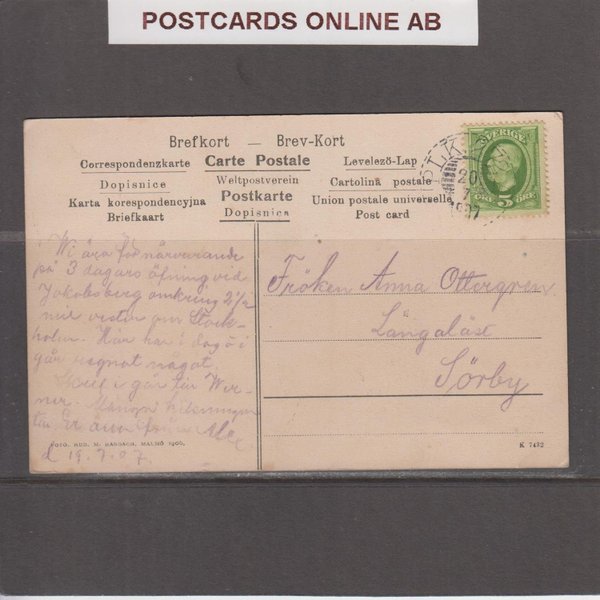 POSTCARDS ONLINE AB
Brefkort — Brev-Kort
Correspondenzkarte Carte Postale Levelező-Lap
Dopisnice Weltpostverein Cartolina postale
Karta korespondencyjna Postkarte Union postale universelle
Briefkaart Dopisnica Post card
SVERIGE
5
ÖRE ÖRE
20
7
1907
Wi äro för närvarande
på 3 dagars öfning vid
Jakobsberg omkring 2½
mil vester om Stock-
holm. Här har i dag o i
går regnat något.
i går för Wer-
ner. Många helsningar
till Er även från
d 19.7.07.
Fröken Anna Ottergren
Långalöst
Sörby
FOTO. HUG. M. MALMÖ 1906.
K 7432